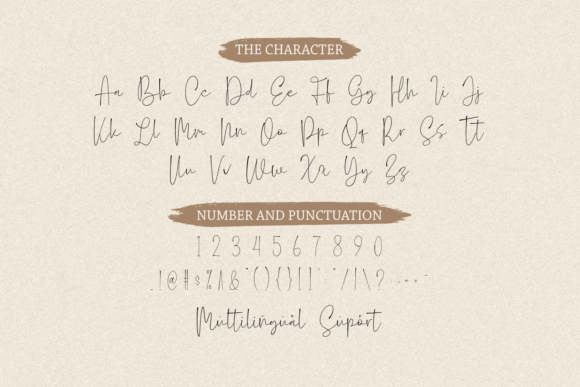 THE CHARACTER
Aa Bb Cc Dd Ee Ff Gg Hh Ii Jj
Kk Ll Mm Nn Oo Pp Qq Rr Ss Tt
Uu Vv Ww Xx Yy Zz
NUMBER AND PUNCTUATION
1 2 3 4 5 6 7 8 9 0
! @ # $ % & ( ) { } [ ] / | \ ?
Múltilingúál Súpórt